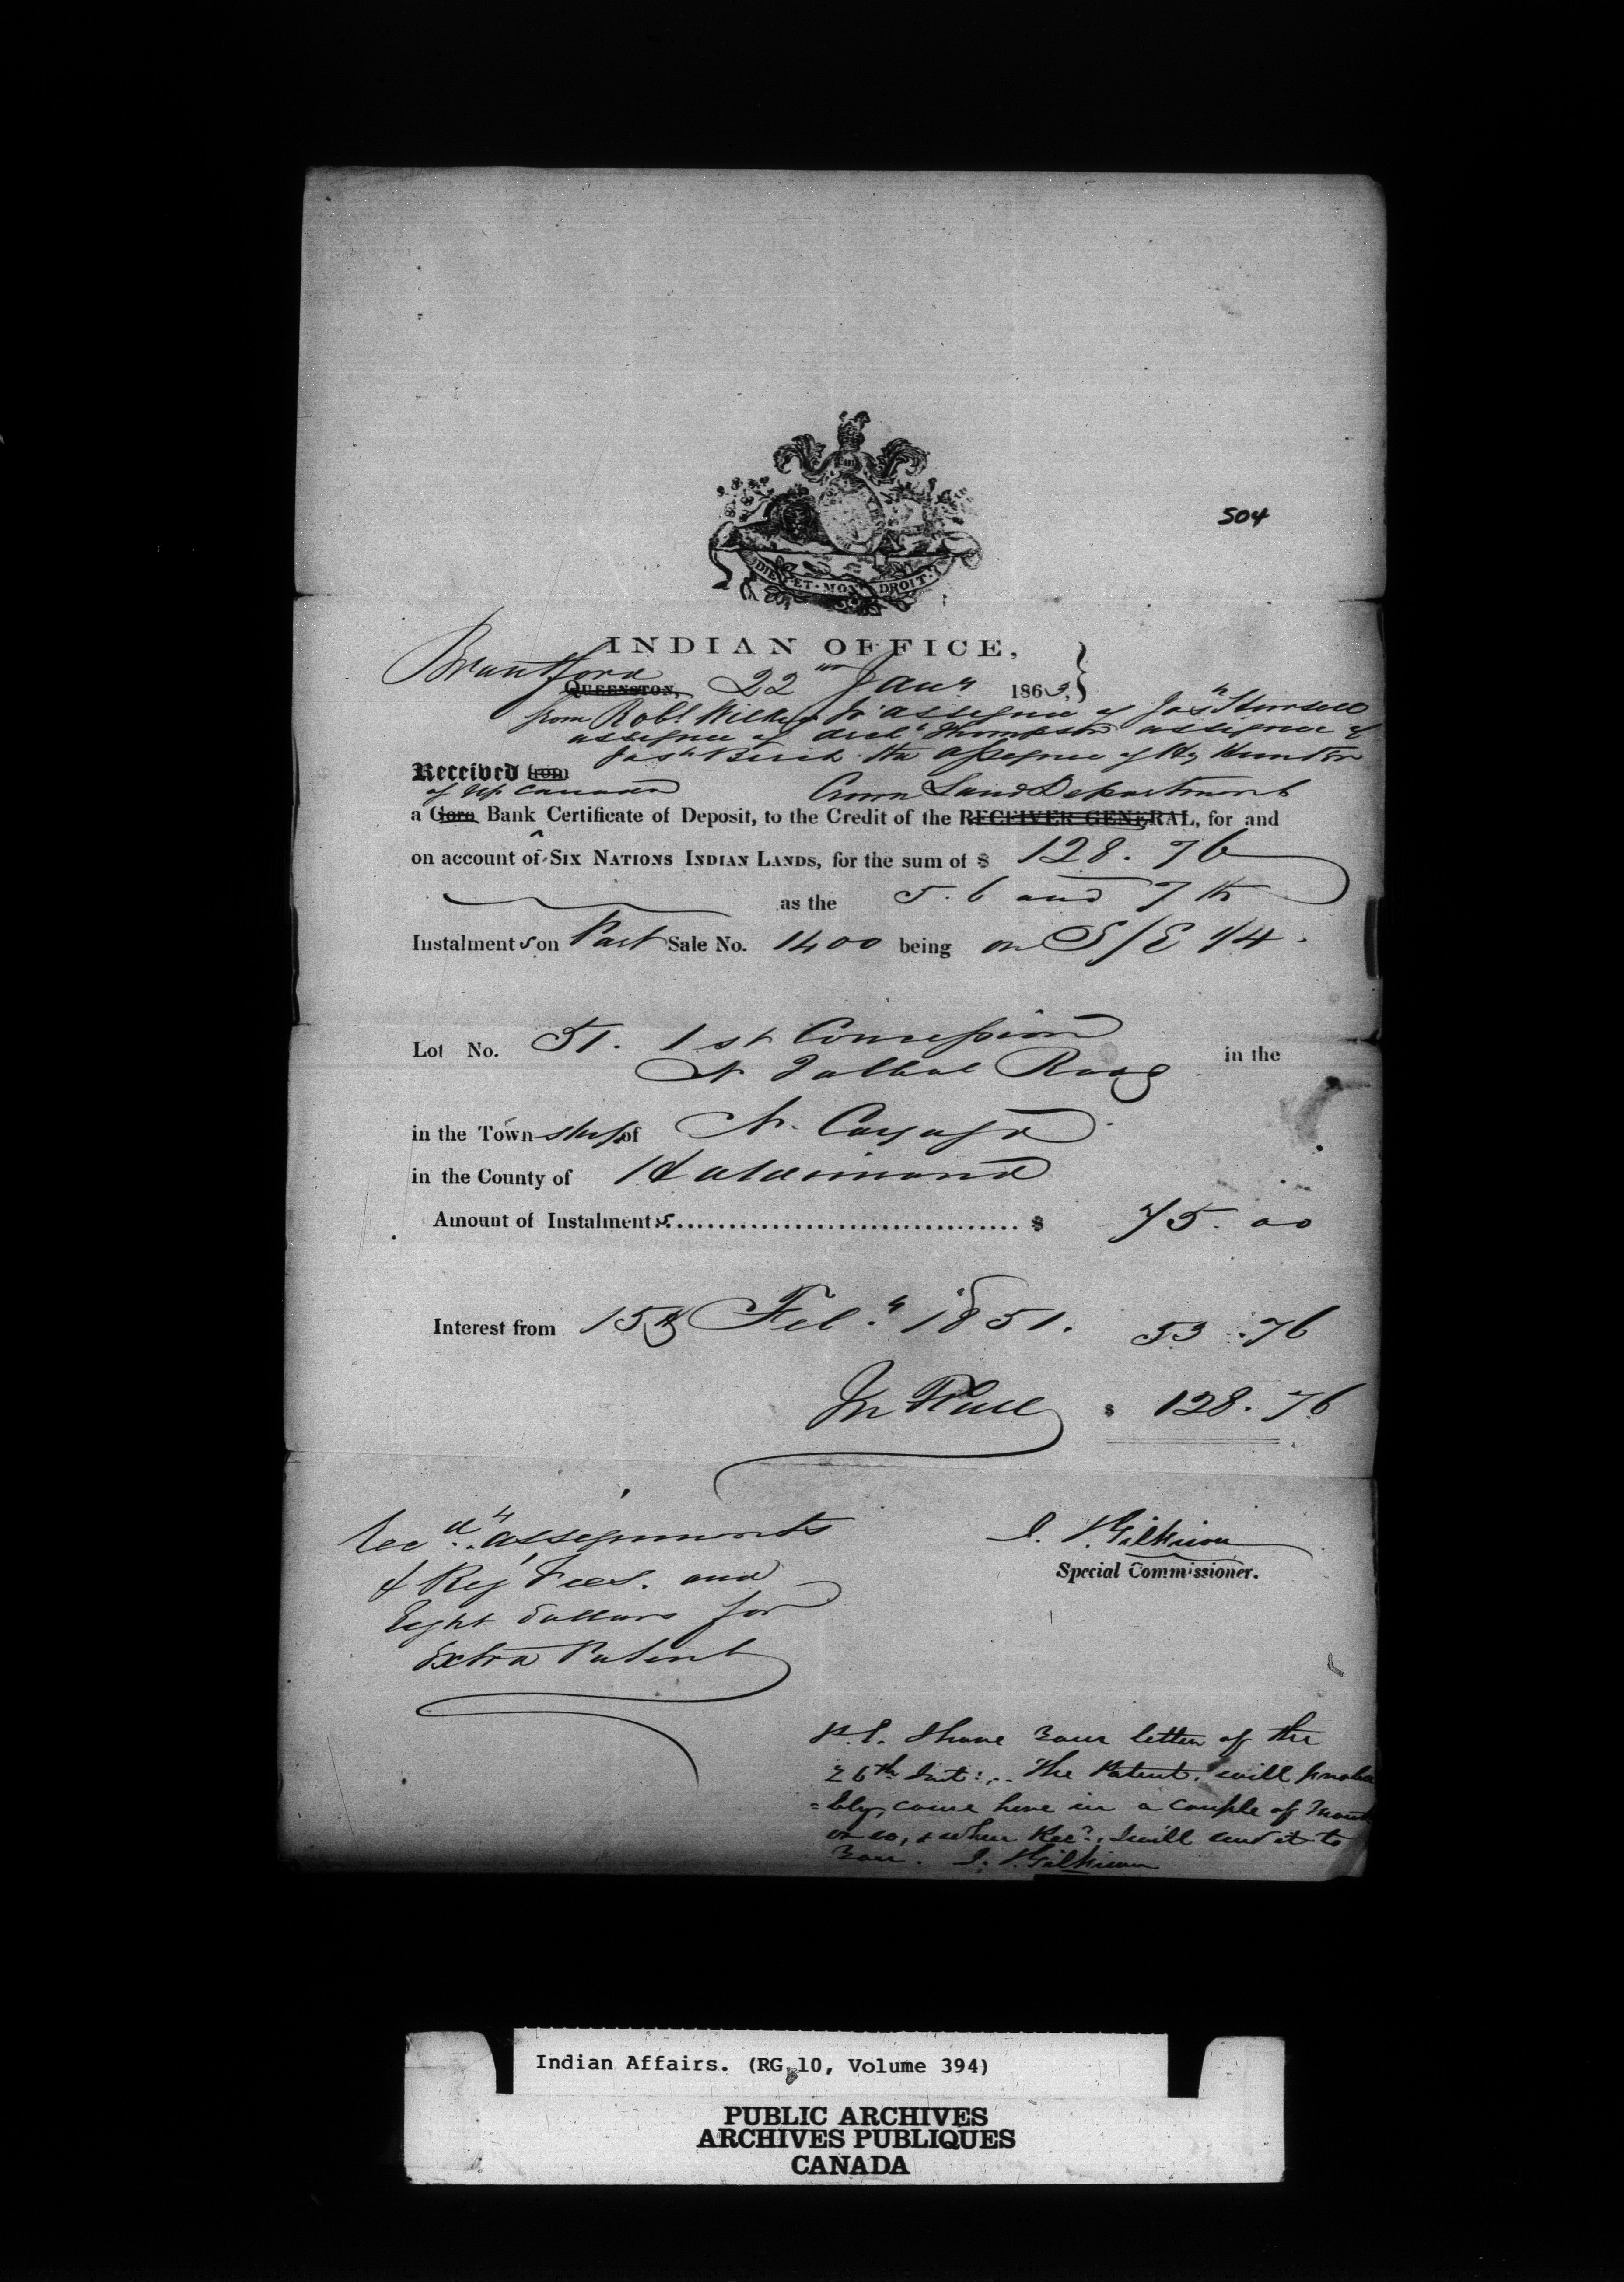 504
DIEU ET MON DROIT
INDIAN OFFICE,
Brantford
QUEENSTON, 22nd Jany 1863,
from Robt Wilkes Jr assignee of Jos
assignee of Archd Thompson assignee of
Josh Birch the assignee of Hy Hunter
Received from
of Up Canada Crown Land Department
a Gore Bank Certificate of Deposit, to the Credit of the RECEIVER GENERAL, for and
on account of SIX NATIONS INDIAN LANDS, for the sum of $ 128.76
as the 5. 6 and 7th
Instalments on Part Sale No. 1400 being on S/E 1/4.
Lot No. 51. 1st Concession
N Talbot Road in the
in the Township of N. Cayuga
in the County of Haldimand
Amount of Instalments $ 75.00
Interest from 15th Feby 1851. 53.76
In Full $ 128.76
Recd assignments
& Reg Fees. and
Eight dollars for
Extra Patent
J. T. Gilkison
Special Commissioner.
P.S. I have your letter of the
26th Inst: The Patent, will proba
=bly, come here in a couple of month
or so, & when Recd, I will send it to
you. J. T. Gilkison
Indian Affairs. (RG 10, Volume 394)
PUBLIC ARCHIVES
ARCHIVES PUBLIQUES
CANADA